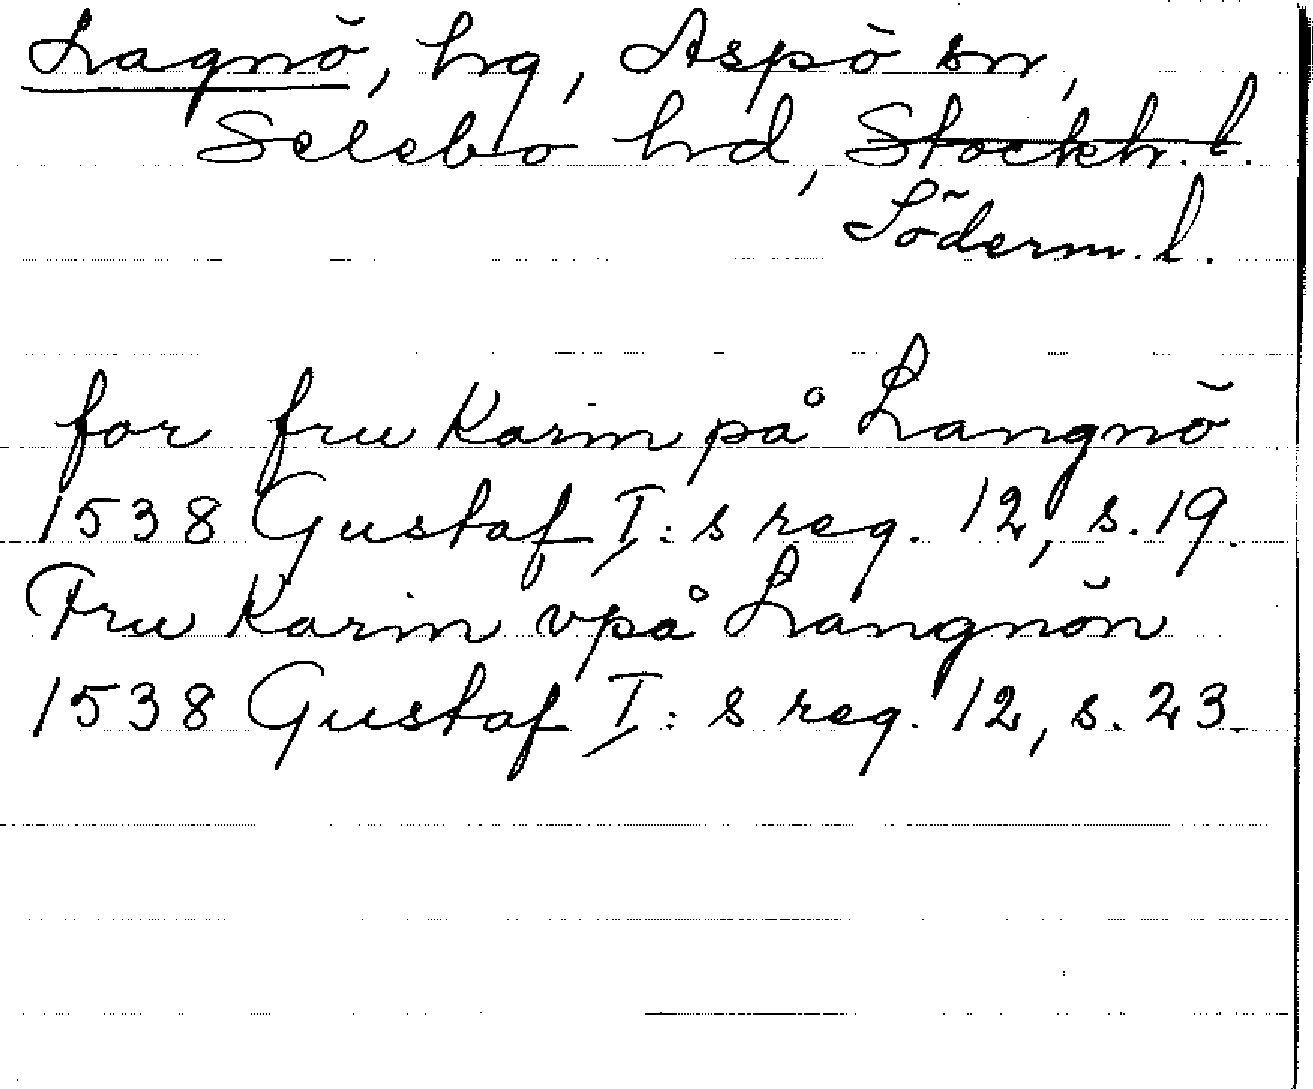 Lagnö, hg, Aspö sn,
Selebo hd, Stockh. l.
Söderm. l.
for fru Karin på Langnö
1538 Gustaf I:s reg. 12, s. 19.
Fru Karin vpå Langnön
1538 Gustaf I:s reg. 12, s. 23.